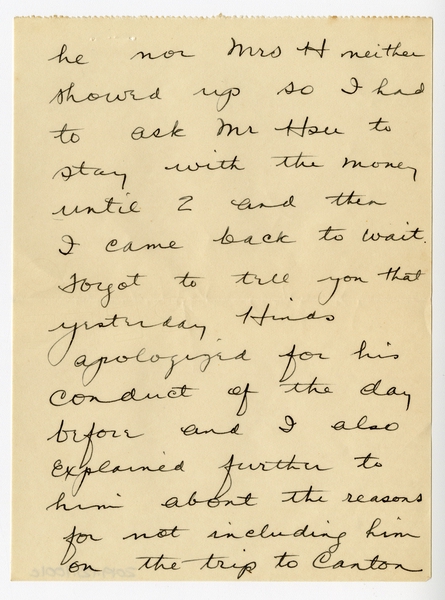 he nor Mrs H neither
showed up so I had
to ask Mr Hsu to
stay with the money
until 2 and then
I came back to wait.
Forgot to tell you that
yesterday Hinds
apologized for his
conduct of the day
before and I also
explained further to
him about the reasons
for not including him
on the trip to Canton